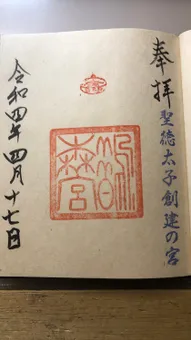 奉拝
聖徳太子創建の宮
鵲森宮
令和四年四月十七日